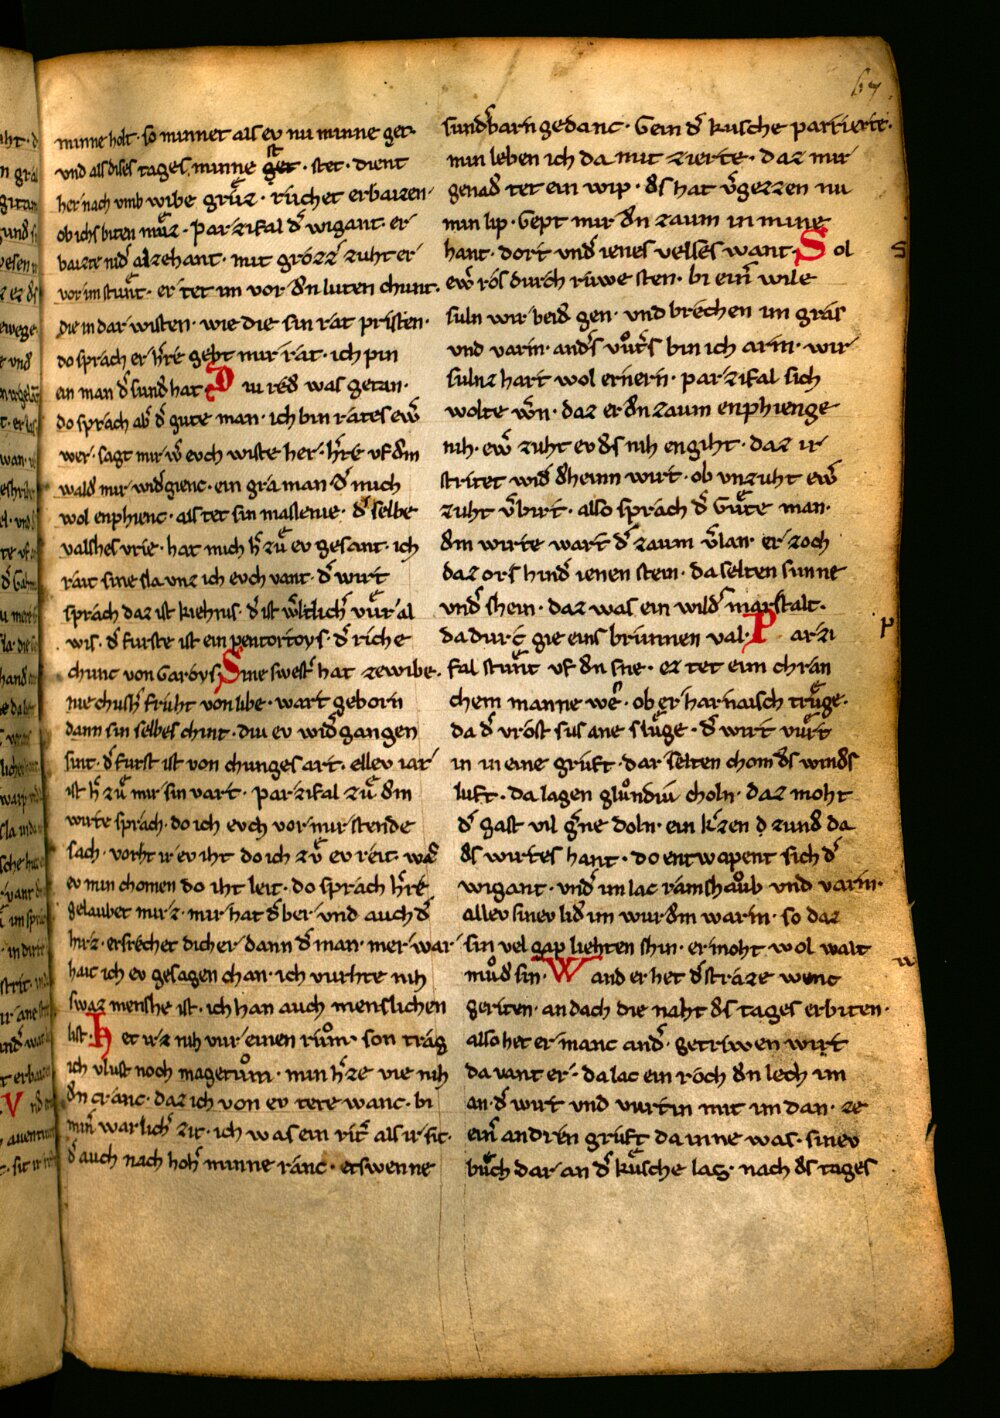 67
minne holt · so minnet als ev nu minne get·
und als dises tages minne get stet · dient
her nach umb wibe grůz · růchet erbaizen·
ob ichs biten můz · Parzifal d͛ wigant · er
baizte nid͛ alzehant · mit grôzz͛ zuht er
vor im stůnt · er tet im vor d͛n luten chunt·
Die in dar wisten · wie die sin rat pristen·
do sprach er h͛re gebt mir rat · ich pin
ein man d͛ sund hat · Diu red͛ was getan·
do sprach ab͛ d͛ gute man · ich bin rates ew͛
wer · sagt mir w͛ evch wiste her · h͛re vf d͛m
wald͛ mir wid͛gienc · ein gra man d͛ mich
wol enphienc · als tet sin massenie · d͛ selbe
valshes vrie · hat mich h͛ zů ev gesant · ich
rait sine sla vnz ich evch vant · d͛ wirt
sprach daz ist kiehnis · d͛ ist w͛rlich͛ vůr al
wis · d͛ furste ist ein pentortoys · d͛ riche
chunc von Garoys · Sine swest͛ hat ze wibe·
nie chush͛ fruht von libe · wart geborn
dann sin selbes chint · diu ev wid͛gangen
sint · d͛ furst ist von chunges art · ellev iar
ist h͛ zů mir sin vart · parzifal zů d͛m
wirte sprach · do ich evch vor mir stende
sach · vorht ir ev iht do ich zů ev reit · wa͛
ev min chomen do iht leit · do sprach h͛re
gelaubet mirz · mir hat d͛ ber und auch d͛
hirz · ersrechet dicher dann d͛ man · mer war
hait ich ev gesagen chan · ich vurhte nih
swaz menshe ist · ich han auch menslichen
list · Het irz nih vur einen rům · son trag
ich vlust noch magetům · min h͛ze vie nih
d͛n cranc · daz ich von ev tete wanc · bi
min͛ warlich͛ zit · ich was ein rit͛ als ir sit·
d͛ auch nach hoh͛ minne ranc · etswenne
sund͛barn gedanc · Gein d͛ kusche parrierte·
min leben ich da mit zierte · daz mir
genad͛ tet ein wip · d͛s hat v͛gezzen nu
min lip · Gept mir d͛n zaum in mine
hant · dort und͛ ienes velses want · Sol
ew͛ ros durch ruwe sten · bi ein͛ wile
suln wir beid͛ gen · und brechen im gras
und varm · and͛s vůt͛s bin ich arm · wir
sulnz hart wol ernern · parzifal sich
wolte w͛n · daz er d͛n zaum enphienge
nih · ew͛ zuht ev d͛s nih engiht · daz ir
stritet wid͛ d͛heinn wirt · ob unzuht ew͛
zuht v͛birt · also sprach d͛ Gůte man·
d͛m wirte wart d͛ zaum v͛lan · er zoch
daz ors hind͛ ienen stein · da selten sunne
und͛ shein · daz was ein wild͛ marstalt·
da durc gie eins brunnen val · Parzi
fal stůnt vf d͛n sne · ez tet eim chran
chem manne we · ob er harnaisch trůge·
da d͛ vrost sus ane slůge · d͛ wirt vůrt
in in eine gruft · dar selten chom d͛s wind͛s
luft · da lagen glůndiu choln · daz moht
d͛ gast vil g͛ne doln · ein k͛zen d zund͛ da
d͛s wirtes hant · do entwapent sich d͛
wigant · und͛ im lac ramshaůb und varm·
allev sinev lid͛ im wurd͛m warm · so daz
sin vel gap liehten shin · er moht wol walt
můd͛ sin · Wand er het d͛ straze wenc
geriten · an dach die naht d͛s tages erbiten·
also het er manc and͛ · getriwen wirt
da vant er · da lac ein roch d͛n lech im
an · d͛ wirt und vůrt in mit im dan · ze
ein͛ andren gruft da inne was · sinev
bůch dar an d͛ kůsche las · nach d͛s tages
S
p
w